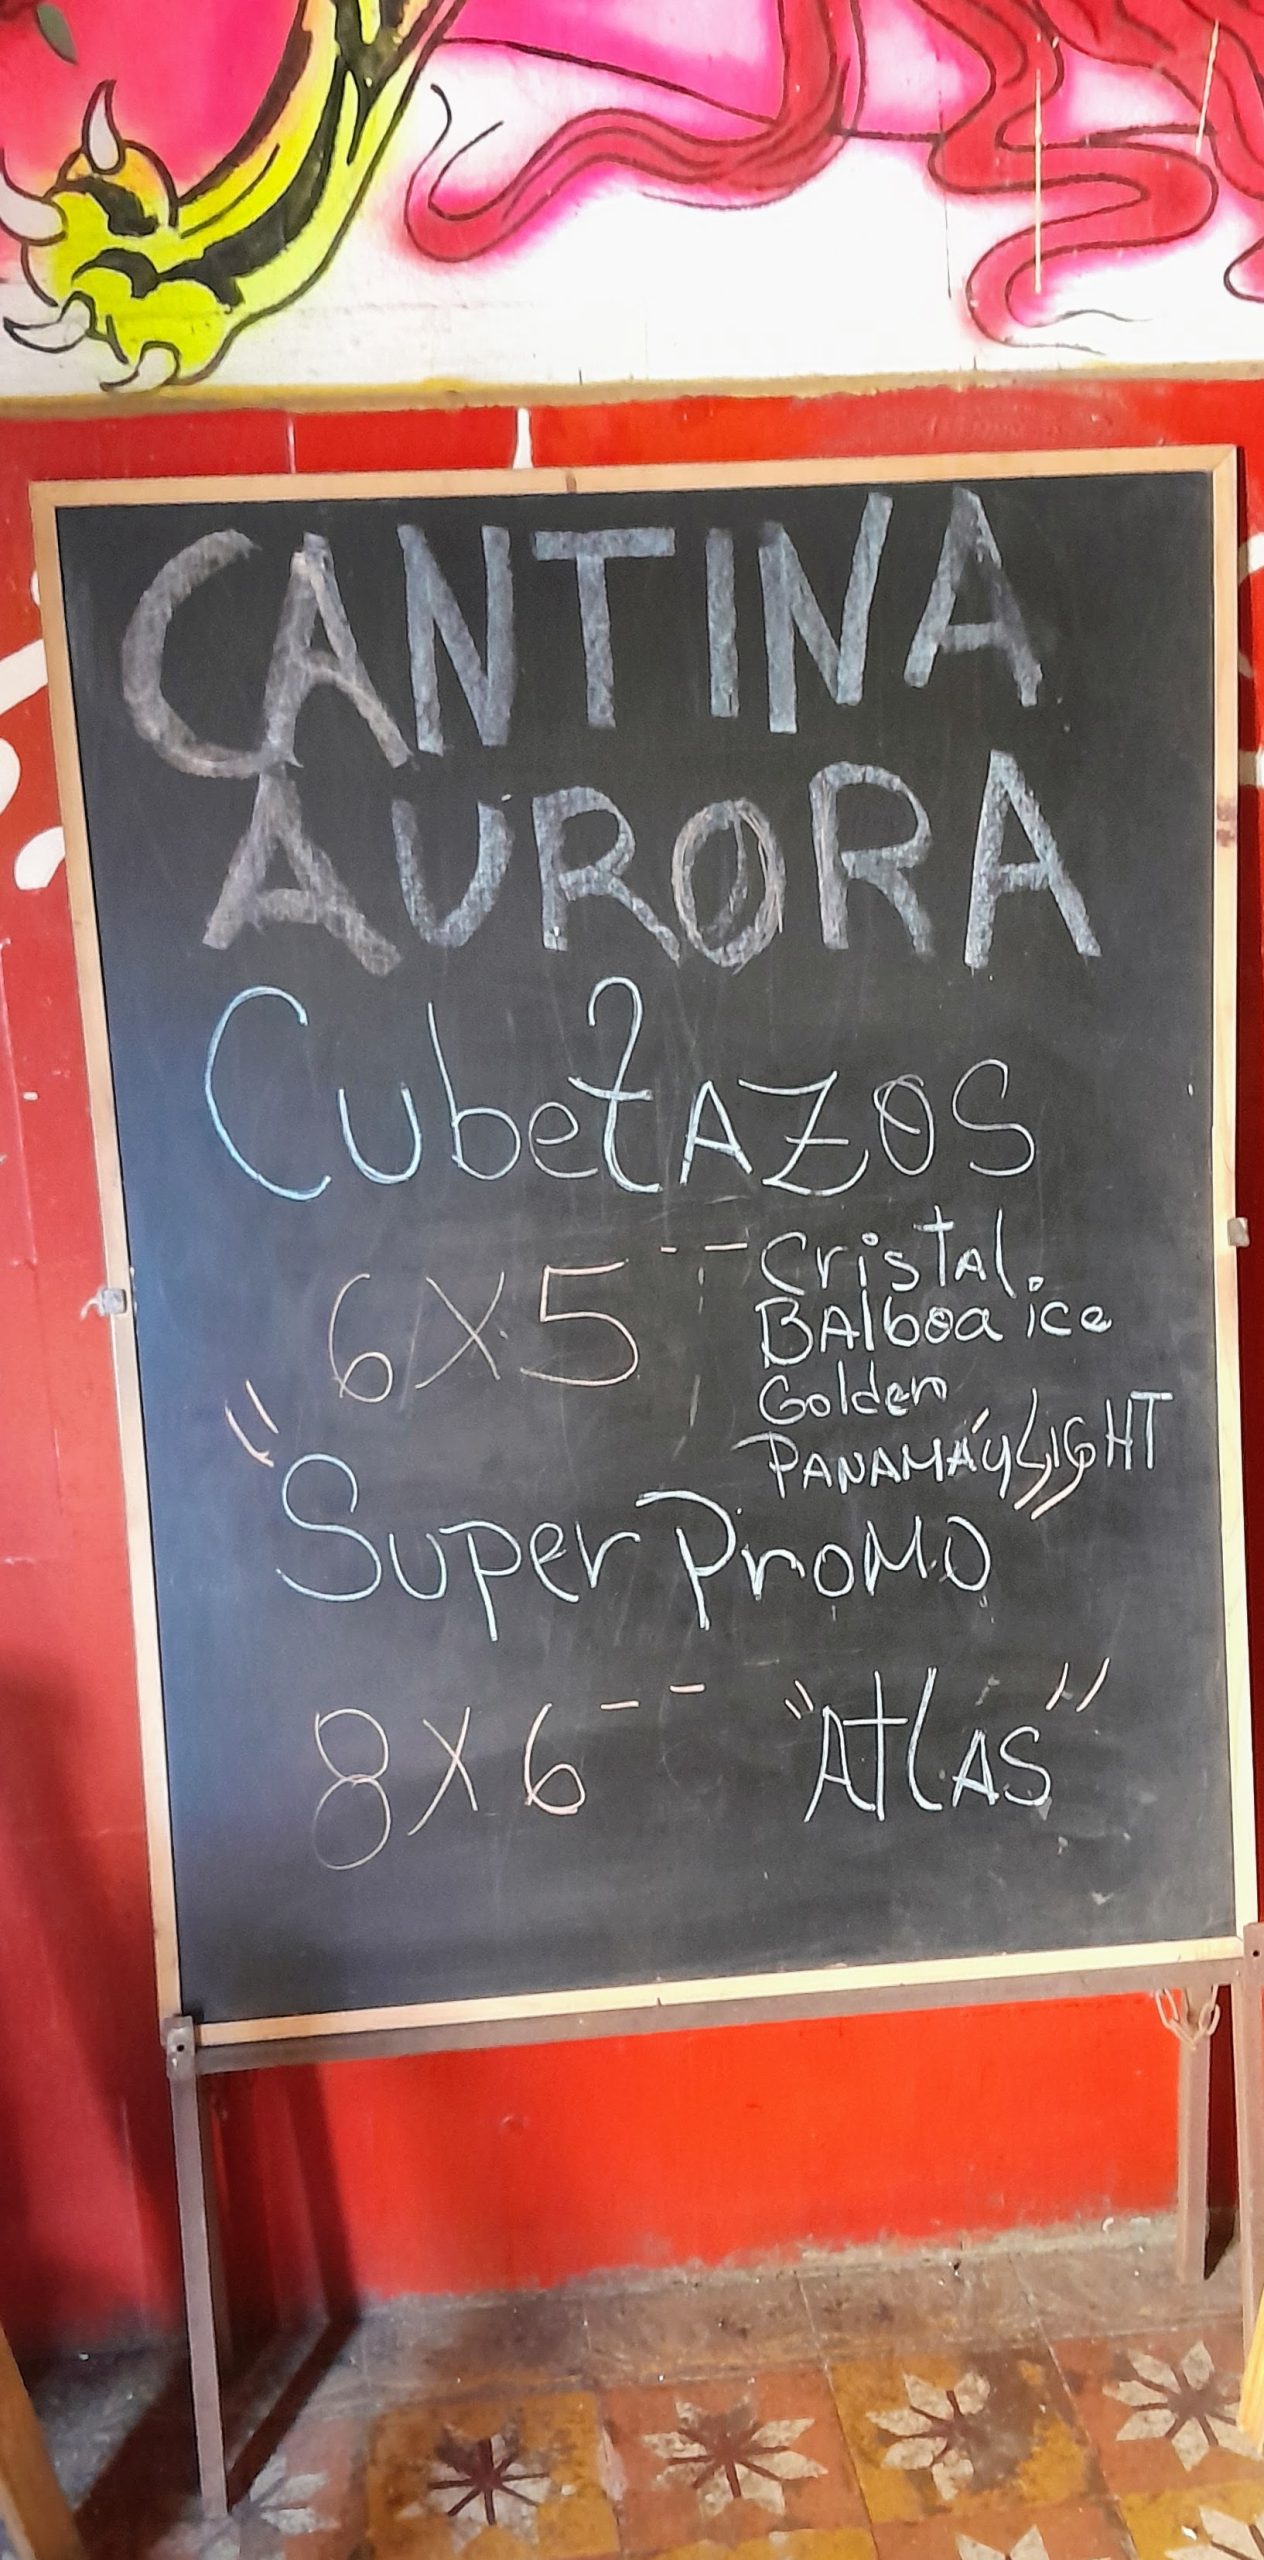 CANTINA
AURORA
CubetAZOS
6X5 -- Cristal.
BAlboa ice
Golden
PANAMÁ y LIGHT
"Super Promo"
8X6 -- "Atlas"